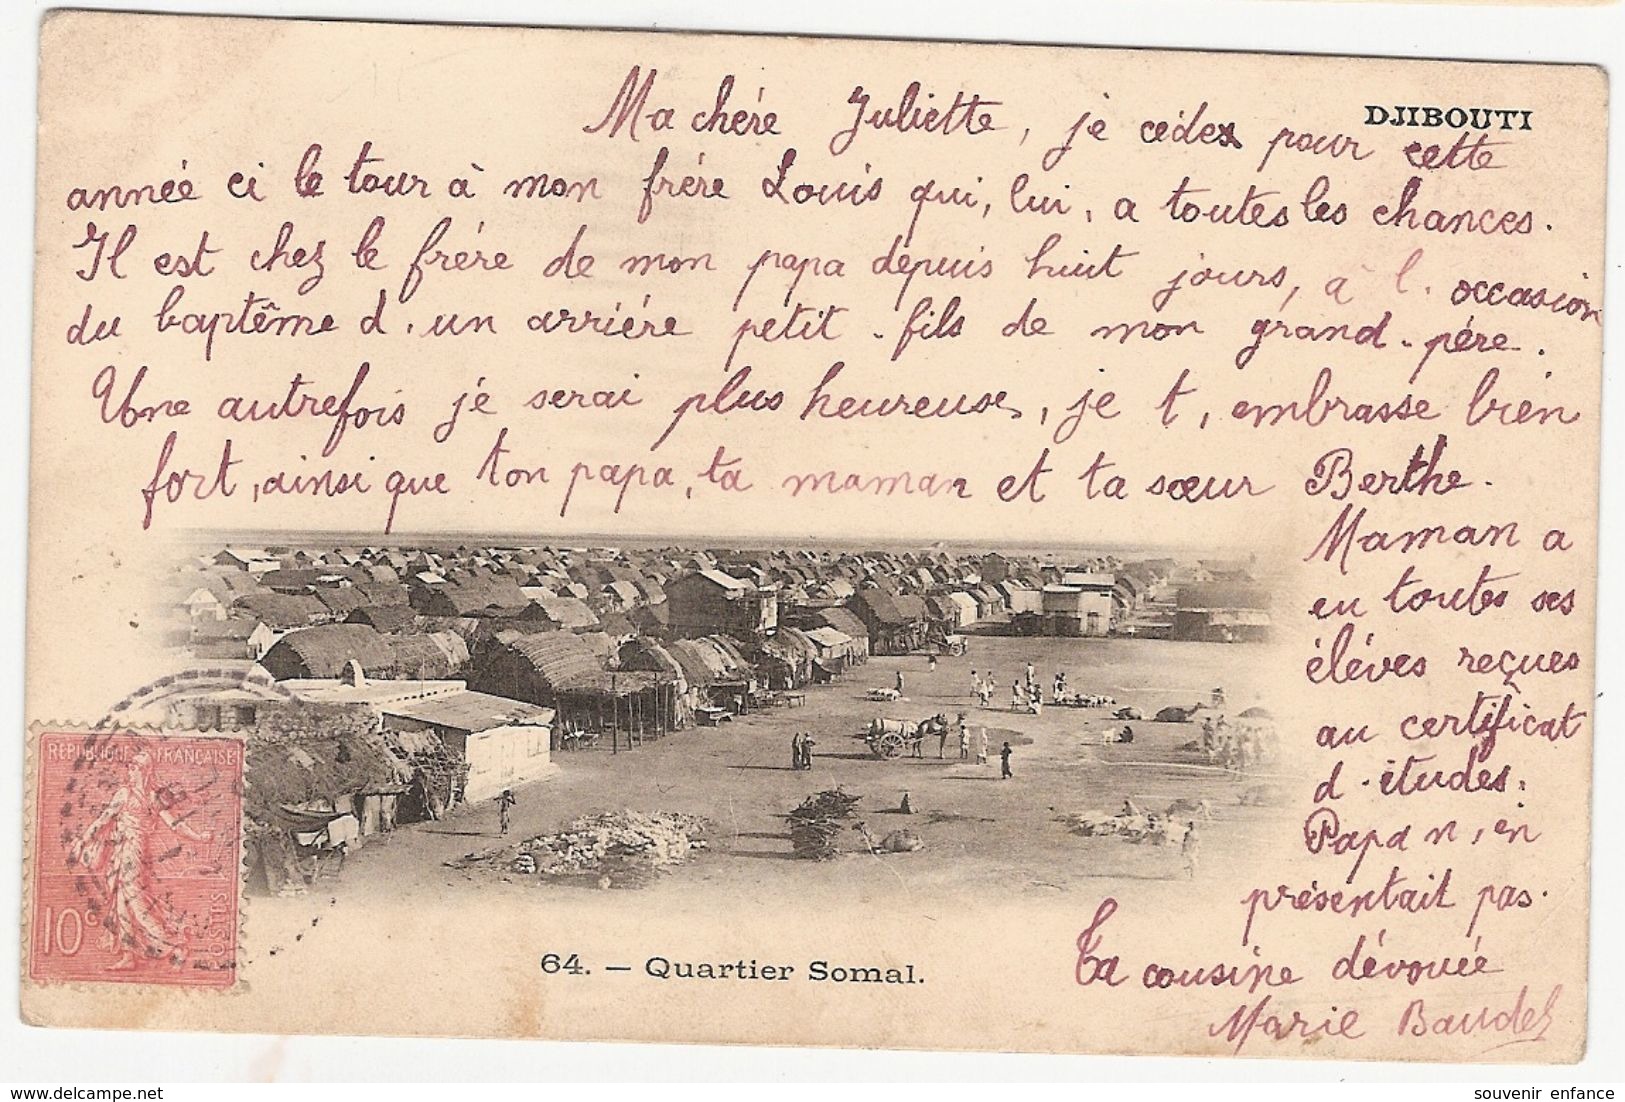 DJIBOUTI
Ma chére Juliette, je cédex pour cette
année ci le tour à mon frére Louis qui, lui, a toutes les chances.
Il est chez le frére de mon papa depuis huit jours, à l. occasion
du baptême d. un arriére petit-fils de mon grand-pére.
Une autrefois je serai plus heureuse, je t, embrasse bien
fort, ainsi que ton papa, ta maman et ta sœur Berthe.
Maman a
eu toutes ses
éléves reçues
au certificat
d. études.
Papa n, en
présentait pas.
Ta cousine dévouée
Marie
REPUBLIQUE FRANÇAISE
10c
POSTES
64. — Quartier Somal.
souvenir enfance